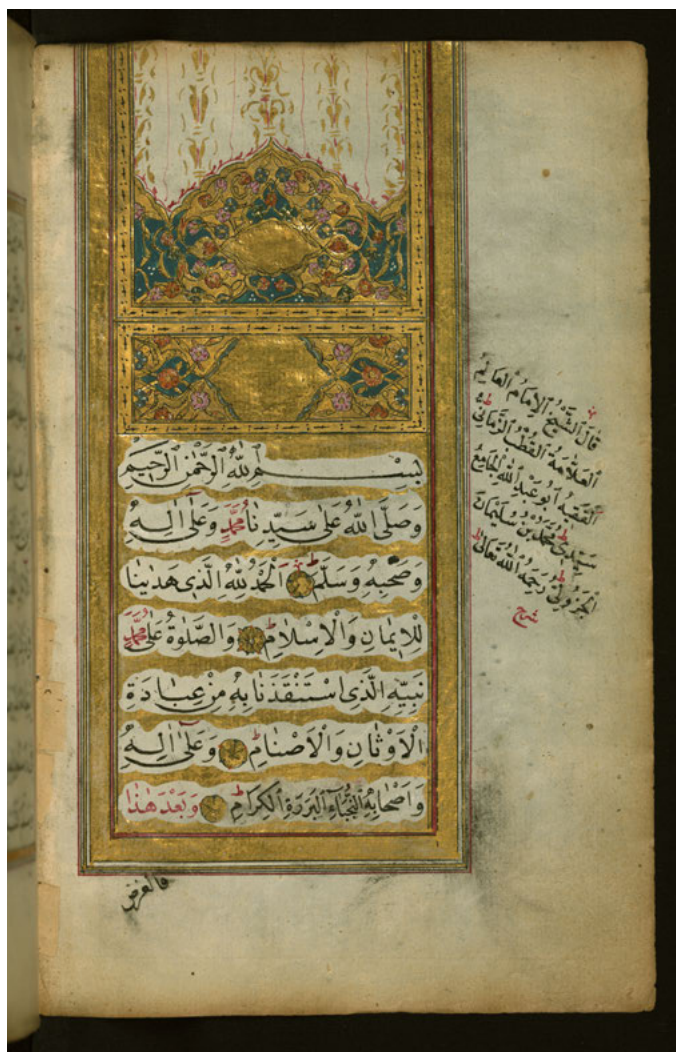 بِسْمِ اللّٰهِ الرَّحْمٰنِ الرَّحِيمِ
وَصَلَّى اللّٰهُ عَلٰى سَيِّدِنَا مُحَمَّدٍ وَعَلٰى اٰلِهِ
وَصَحْبِهِ وَسَلَّمَ اَلْحَمْدُ لِلّٰهِ الَّذِى هَدٰينَا
لِلْاِيمَانِ وَالْاِسْلَامِ وَالصَّلٰوةُ عَلٰى مُحَمَّدٍ
نَبِيِّهِ الَّذِى اسْتَنْقَذَنَا بِهِ مِنْ عِبَادَةِ
الْاَوْثَانِ وَالْاَصْنَامِ وَعَلٰى اٰلِهِ
وَاَصْحَابِهِ النُّجَبَاءِ الْبَرَرَةِ الْكِرَامِ وَبَعْدَ هٰذَا
فالغرض
قَالَ الشَّيْخُ الْاِمَامُ الْعَالِمُ
اَلْعَلَّامَةُ الْقُطْبُ الزَّمَانِىُّ
اَلْفَقِيهُ اَبُو عَبْدِ اللّٰهِ الْجَامِعُ
سَيِّدِى مُحَمَّدُ بْنُ سُلَيْمَانَ
الْجَزُولِىُّ رَحِمَهُ اللّٰهُ تَعَالٰى
شرح